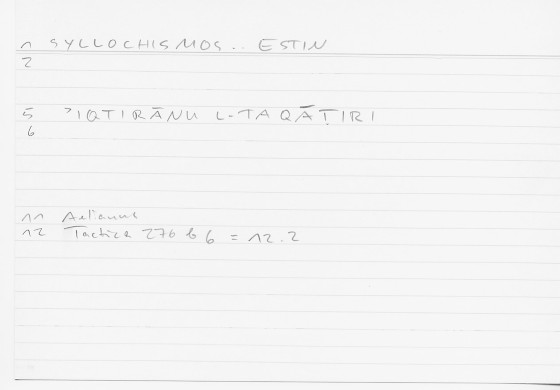 1 SYLLOCHISMOS.. ESTIN
2
5 ʾIQTIRĀNU L-TAQĀṬIRI
6
11 Aelianus
12 Tactica 276 b 6 = 12.2